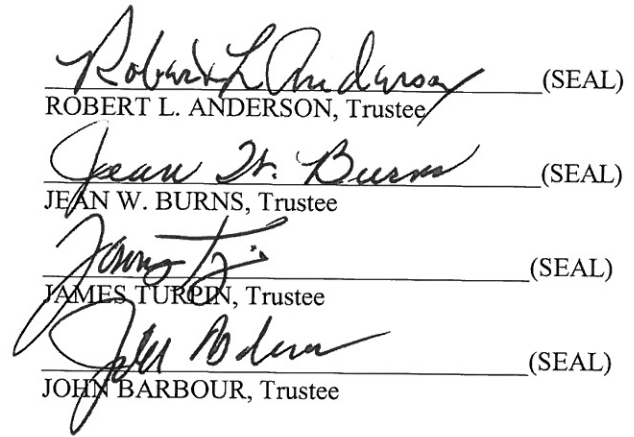 Robert L Anderson (SEAL)
ROBERT L. ANDERSON, Trustee
Jean W. Burns (SEAL)
JEAN W. BURNS, Trustee
(SEAL)
JAMES TURPIN, Trustee
(SEAL)
JOHN BARBOUR, Trustee